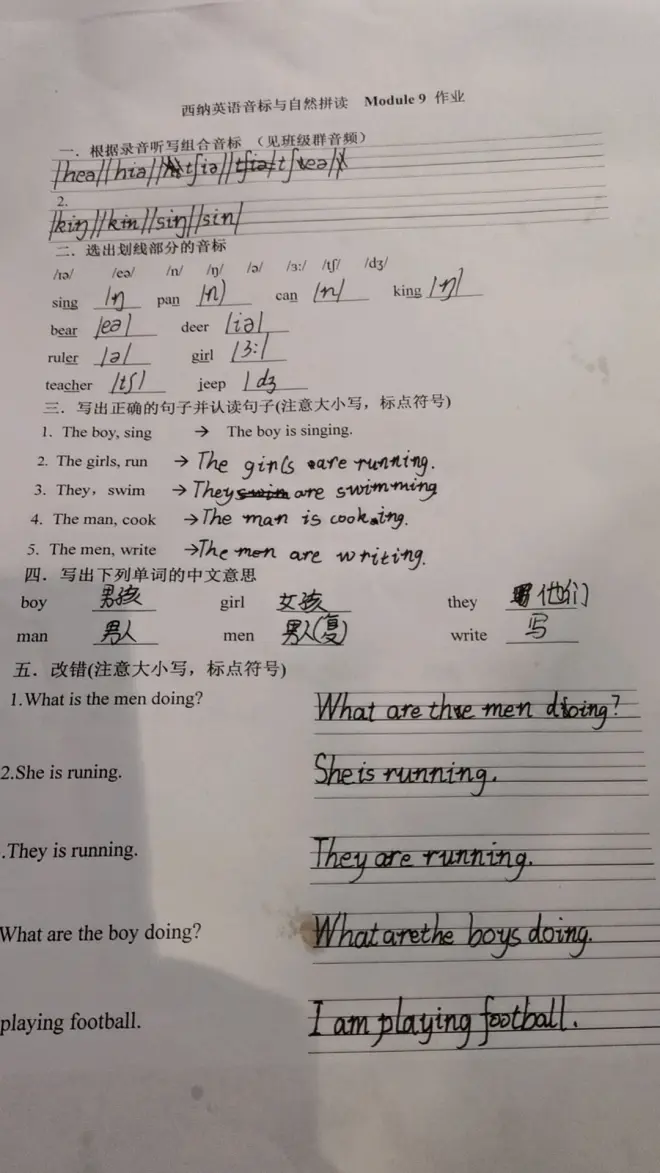 西纳英语音标与自然拼读 Module 9 作业
一．根据录音听写组合音标 （见班级群音频）
/heə/ /hiə/ /tʃiə/ /tʃeə/
2.
/kiŋ/ /kin/ /siŋ/ /sin/
二．选出划线部分的音标
/ɪə/ /eə/ /n/ /ŋ/ /ə/ /ɜ:/ /tʃ/ /dʒ/
sing /ŋ pan /n/ can /n/ king /ŋ/
bear /eə/ deer /iə/
ruler /ə/ girl /ɜ:/
teacher /tʃ/ jeep /dʒ
三．写出正确的句子并认读句子(注意大小写，标点符号)
1. The boy, sing → The boy is singing.
2. The girls, run → The girls are running.
3. They，swim → They are swimming
4. The man, cook → The man is cooking.
5. The men, write → The men are writing.
四．写出下列单词的中文意思
boy 男孩 girl 女孩 they 他们
man 男人 men 男人(复) write 写
五．改错(注意大小写，标点符号)
1.What is the men doing? What are the men doing?
2.She is runing. She is running.
.They is running. They are running.
What are the boy doing? What are the boys doing.
playing football. I am playing football.